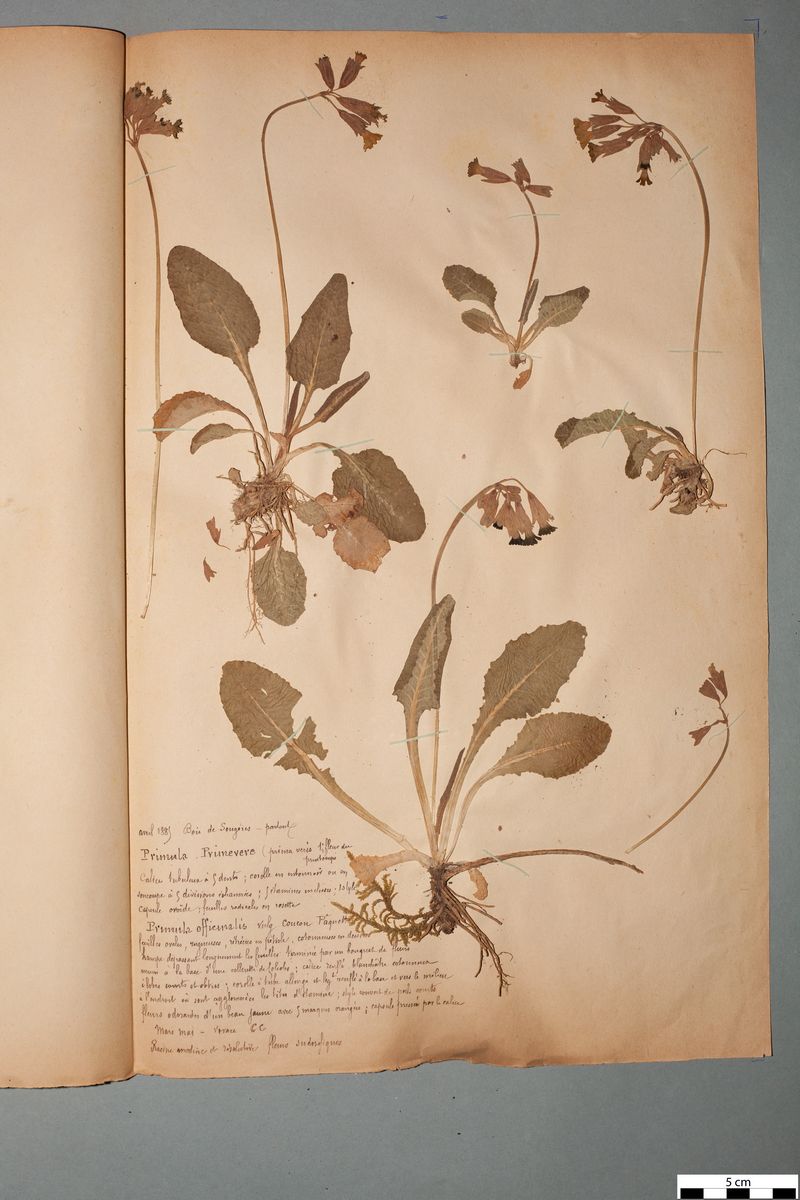 avril 1885 Bois de Songères – partout
Primula. Primevere (prima veris 1ère fleur du
printemps
Calice tubuleux à 5 dents ; corolle en entonnoir ou en
soucoupe à 5 divisions échancrées ; 5 étamines incluses ; 1 style
capsule ovoïde ; feuilles radicales en rosette
Primula officinalis vulg Coucou
feuilles ovales, rugueuses, en pétiole, cotonneuses en dessous
hampe depassant longuement les feuilles terminée par un bouquet de fleurs
muni à la base d'une collerette de folioles ; calice renflé blanchâtre cotonneux
à lobes courts et obtus ; corolle à tube allongé et renflé à la base et vers le milieu
à l'endroit où sont agglomérées les têtes d'étamine ; style couvert de poils courts
fleurs odorantes d'un beau jaune avec 5 marques orangées ; capsule pressée par le calice
Mars mai – vivace CC
Racine anodine et résolutive fleurs sudorifiques
5 cm